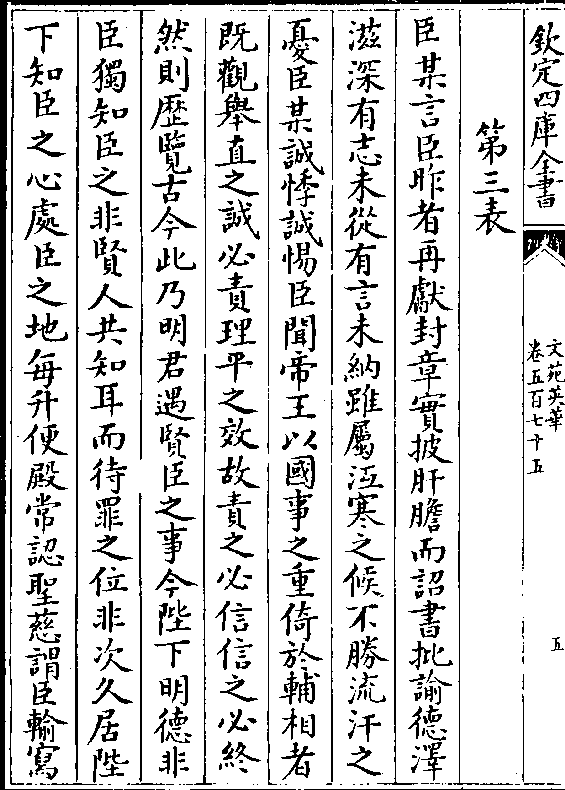 欽定四庫全書
文苑英華
卷五百七十五
五
第三表
臣某言臣昨者再獻封章實披肝膽而詔書批諭德澤
滋深有志未從有言未納雖屬沍寒之候不勝流汗之
憂臣某誠悸誠惕臣聞帝王以國事之重倚於輔相者
既觀舉直之誠必責理平之效故責之必信信之必終
然則歴覽古今此乃明君遇賢臣之事今陛下明德非
臣獨知臣之非賢人共知耳而待罪之位非次久居陛
下知臣之心處臣之地每升便殿常認聖慈謂臣輸寫